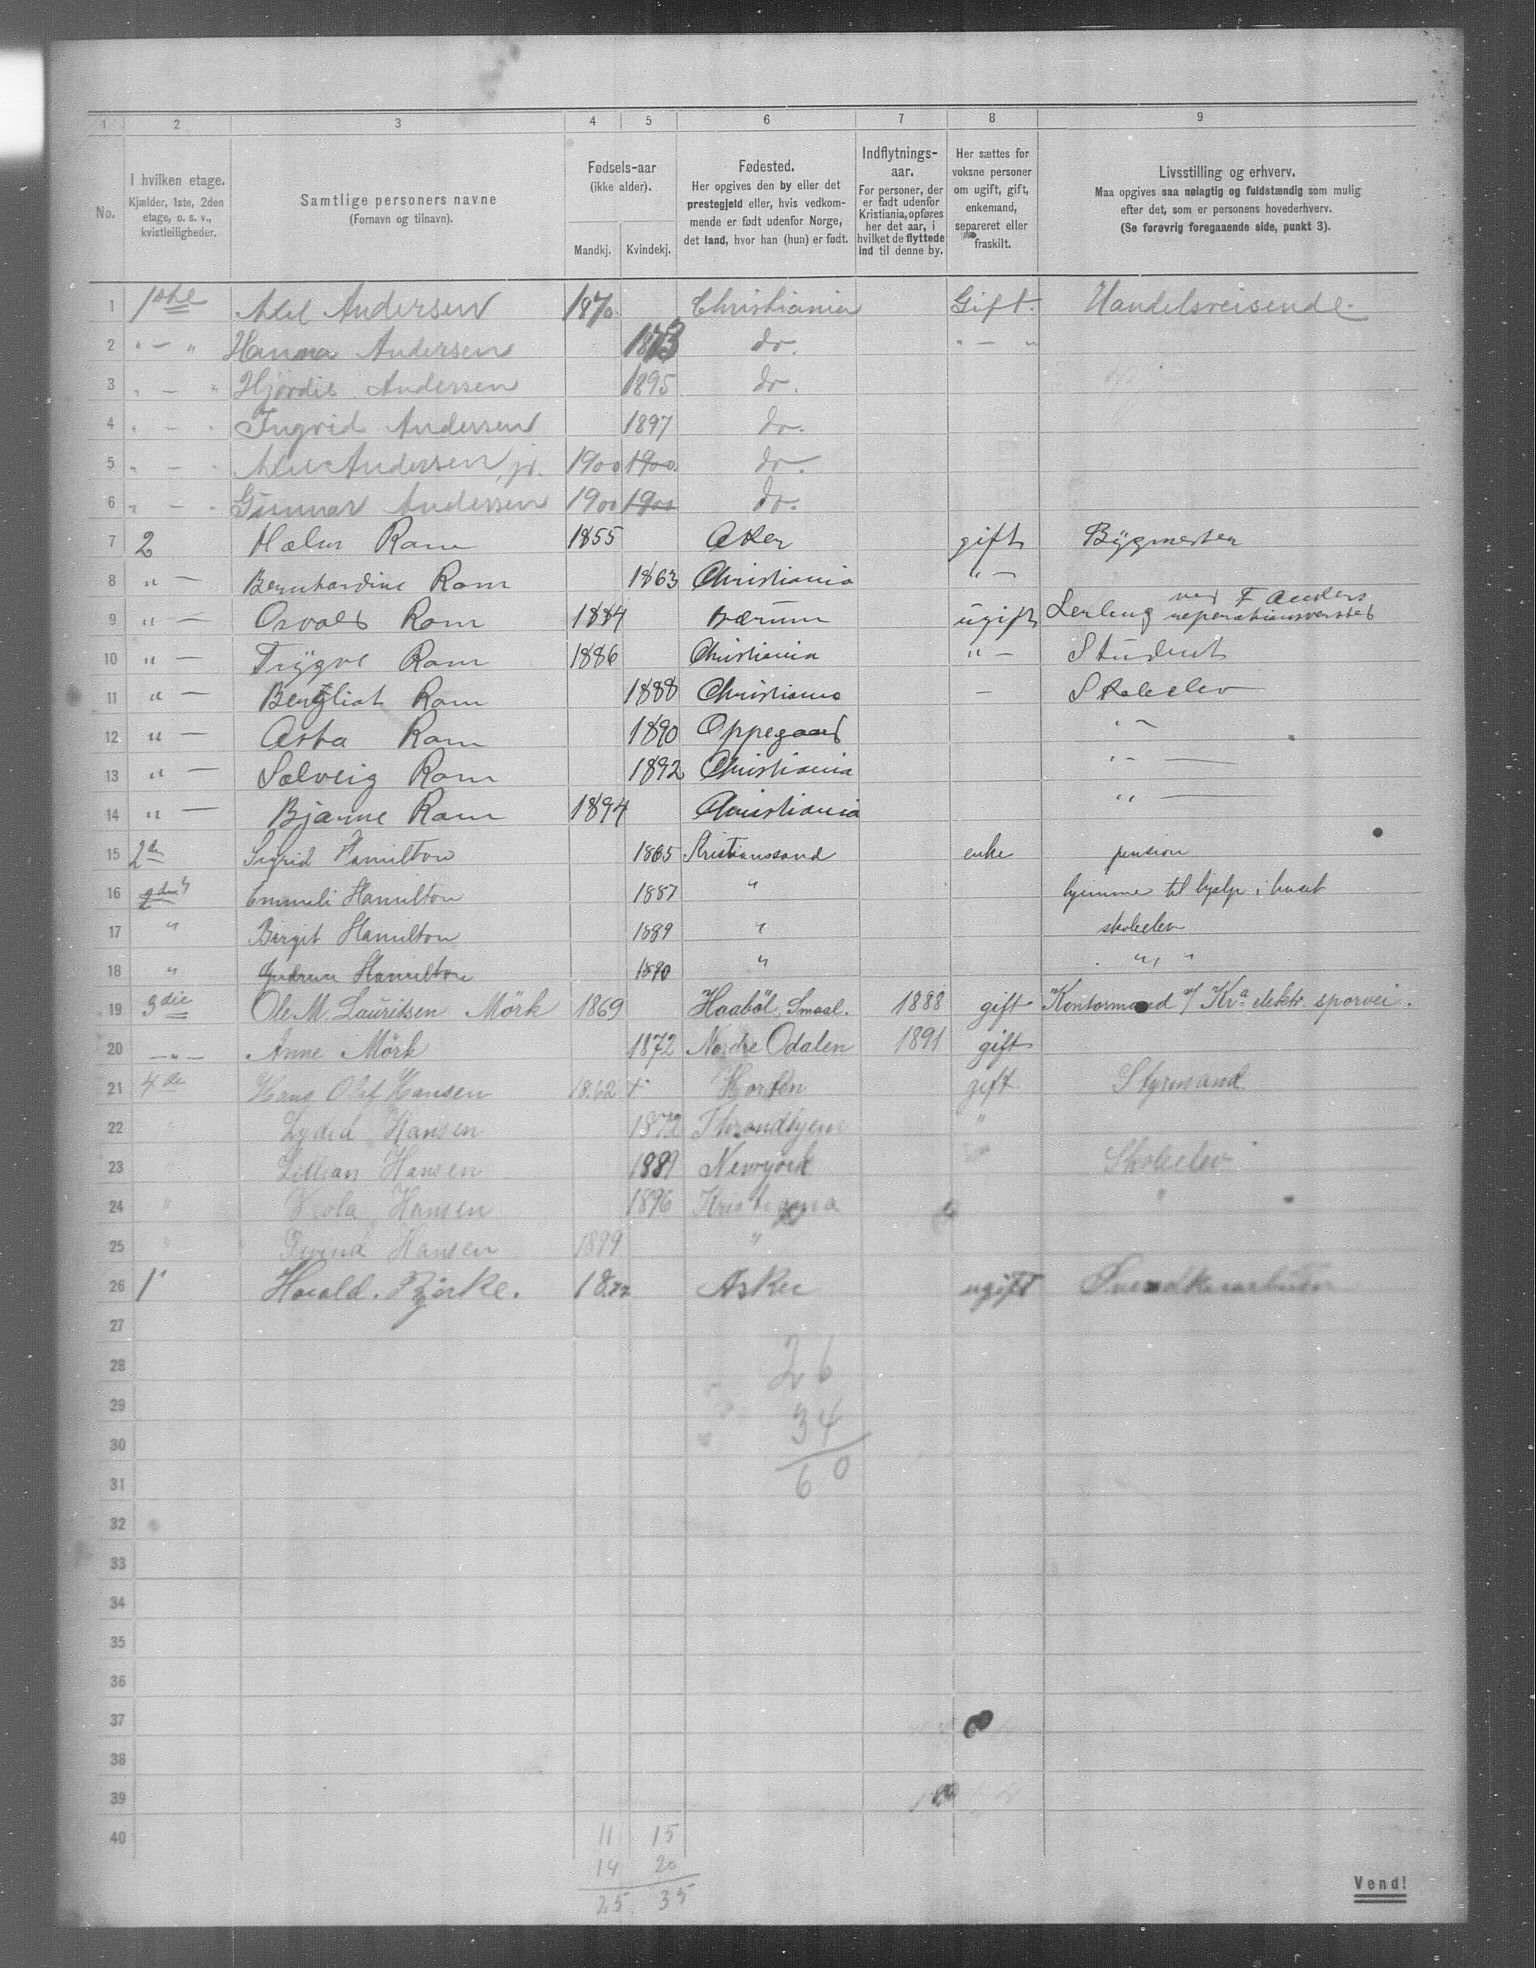 1 2 3 4 5 6 7 8 9
No.
I hvilken etage.
Kjælder, 1ste, 2den
etage, o. s. v.,
kvistleiligheder.
Samtlige personers navne
(Fornavn og tilnavn).
Fødsels-aar
(ikke alder).
Mandkj. Kvindekj.
Fødested.
Her opgives den by eller det
prestegjeld eller, hvis vedkom-
mende er født udenfor Norge,
det land, hvor han (hun) er født.
Indflytnings-
aar.
For personer, der
er født udenfor
Kristiania, opføres
her det aar, i
hvilket de flyttede
ind til denne by.
Her sættes for
voksne personer
om ugift, gift,
enkemand,
separeret eller
fraskilt.
Livsstilling og erhverv.
Maa opgives saa nøiagtig og fuldstændig som mulig
efter det, som er personens hovederhverv.
(Se forøvrig foregaaende side, punkt 3).
1 1ste Axel Andersen 1870 Christiania Gift. Handelsreisende.
2 " — " Hanna Andersen 1873 do. " — "
3 " — " Hjørdis Andersen 1895 do.
4 " — " Ingrid Andersen 1897 do.
5 " — " Axel Andersen jr. 1900 1900 do.
6 " — " Gunnar Andersen 1900 1900 do.
7 2 Ram 1855 Aker gift Bygmester
8 " — Bernhardine Ram 1863 Christiania " —
9 " — Osvald Ram 1884 Bærum ugift Lerling ved
10 " — Trygve Ram 1886 Christiania " — Student
11 " — Bergliot Ram 1888 Christiania — Skoleelev
12 " — Asta Ram 1890 Oppegaard " —
13 " — Solveig Ram 1892 Christiania " —
14 " — Bjarne Ram 1894 Christiania " —
15 2den Sigrid Hamilton 1865 Kristianssand enke pension
16 2den " Emmeli Hamilton 1887 " hjemme til hjælp i huset
17 " Birgit Hamilton 1889 " skoleelev
18 " Gudrun Hamilton 1890 " " "
19 3die Ole M. Lauritsen Mörk 1869 Haaböl, Smaal. 1888 gift Kontormand v/ Kra elektr. sporvei.
20 — " — Anne Mörk 1872 Nordre Odalen 1891 gift
21 4de Hans Olaf Hansen 1862 Horten gift Styrmand
22 " Hansen 1872 Throndhjem "
23 " Lillian Hansen 1889 Newyork Skoleelev
24 " Viola Hansen 1896 Kristiania "
25 " Hansen 1899 "
26 1 Harald. Bjerke. 1877 Asker ugift
27
28 26
29 34
30
31 60
32
33
34
35
36
37
38
39
40
11 15
14 20
25 35
Vend!